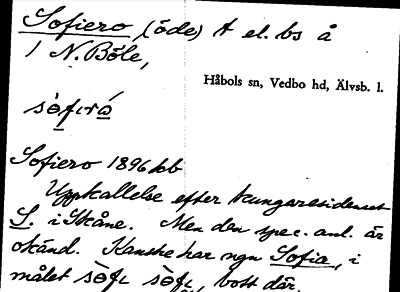 Sofiero (öde) t el. bs å
1 N. Böle,
Håbols sn, Vedbo hd, Älvsb. l.
Sofiero 1896 kb
Uppkallelse efter kungaresidenset
S. i Skåne. Men den spec. anl. är
okänd. Kanske har ngn Sofia, i
målet sòfı sòfı, bott där.